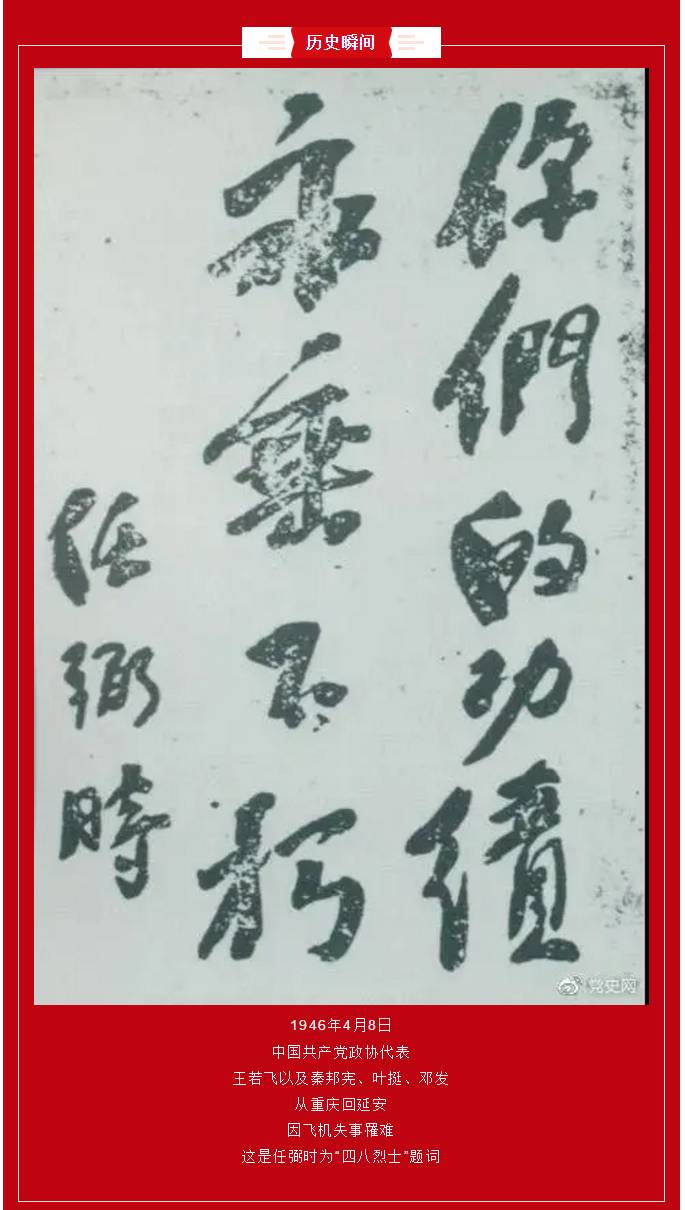 历史瞬间
你們的功績
永垂不朽
任弼時
党史网
1946年4月8日
中国共产党政协代表
王若飞以及秦邦宪、叶挺、邓发
从重庆回延安
因飞机失事罹难
这是任弼时为“四八烈士”题词